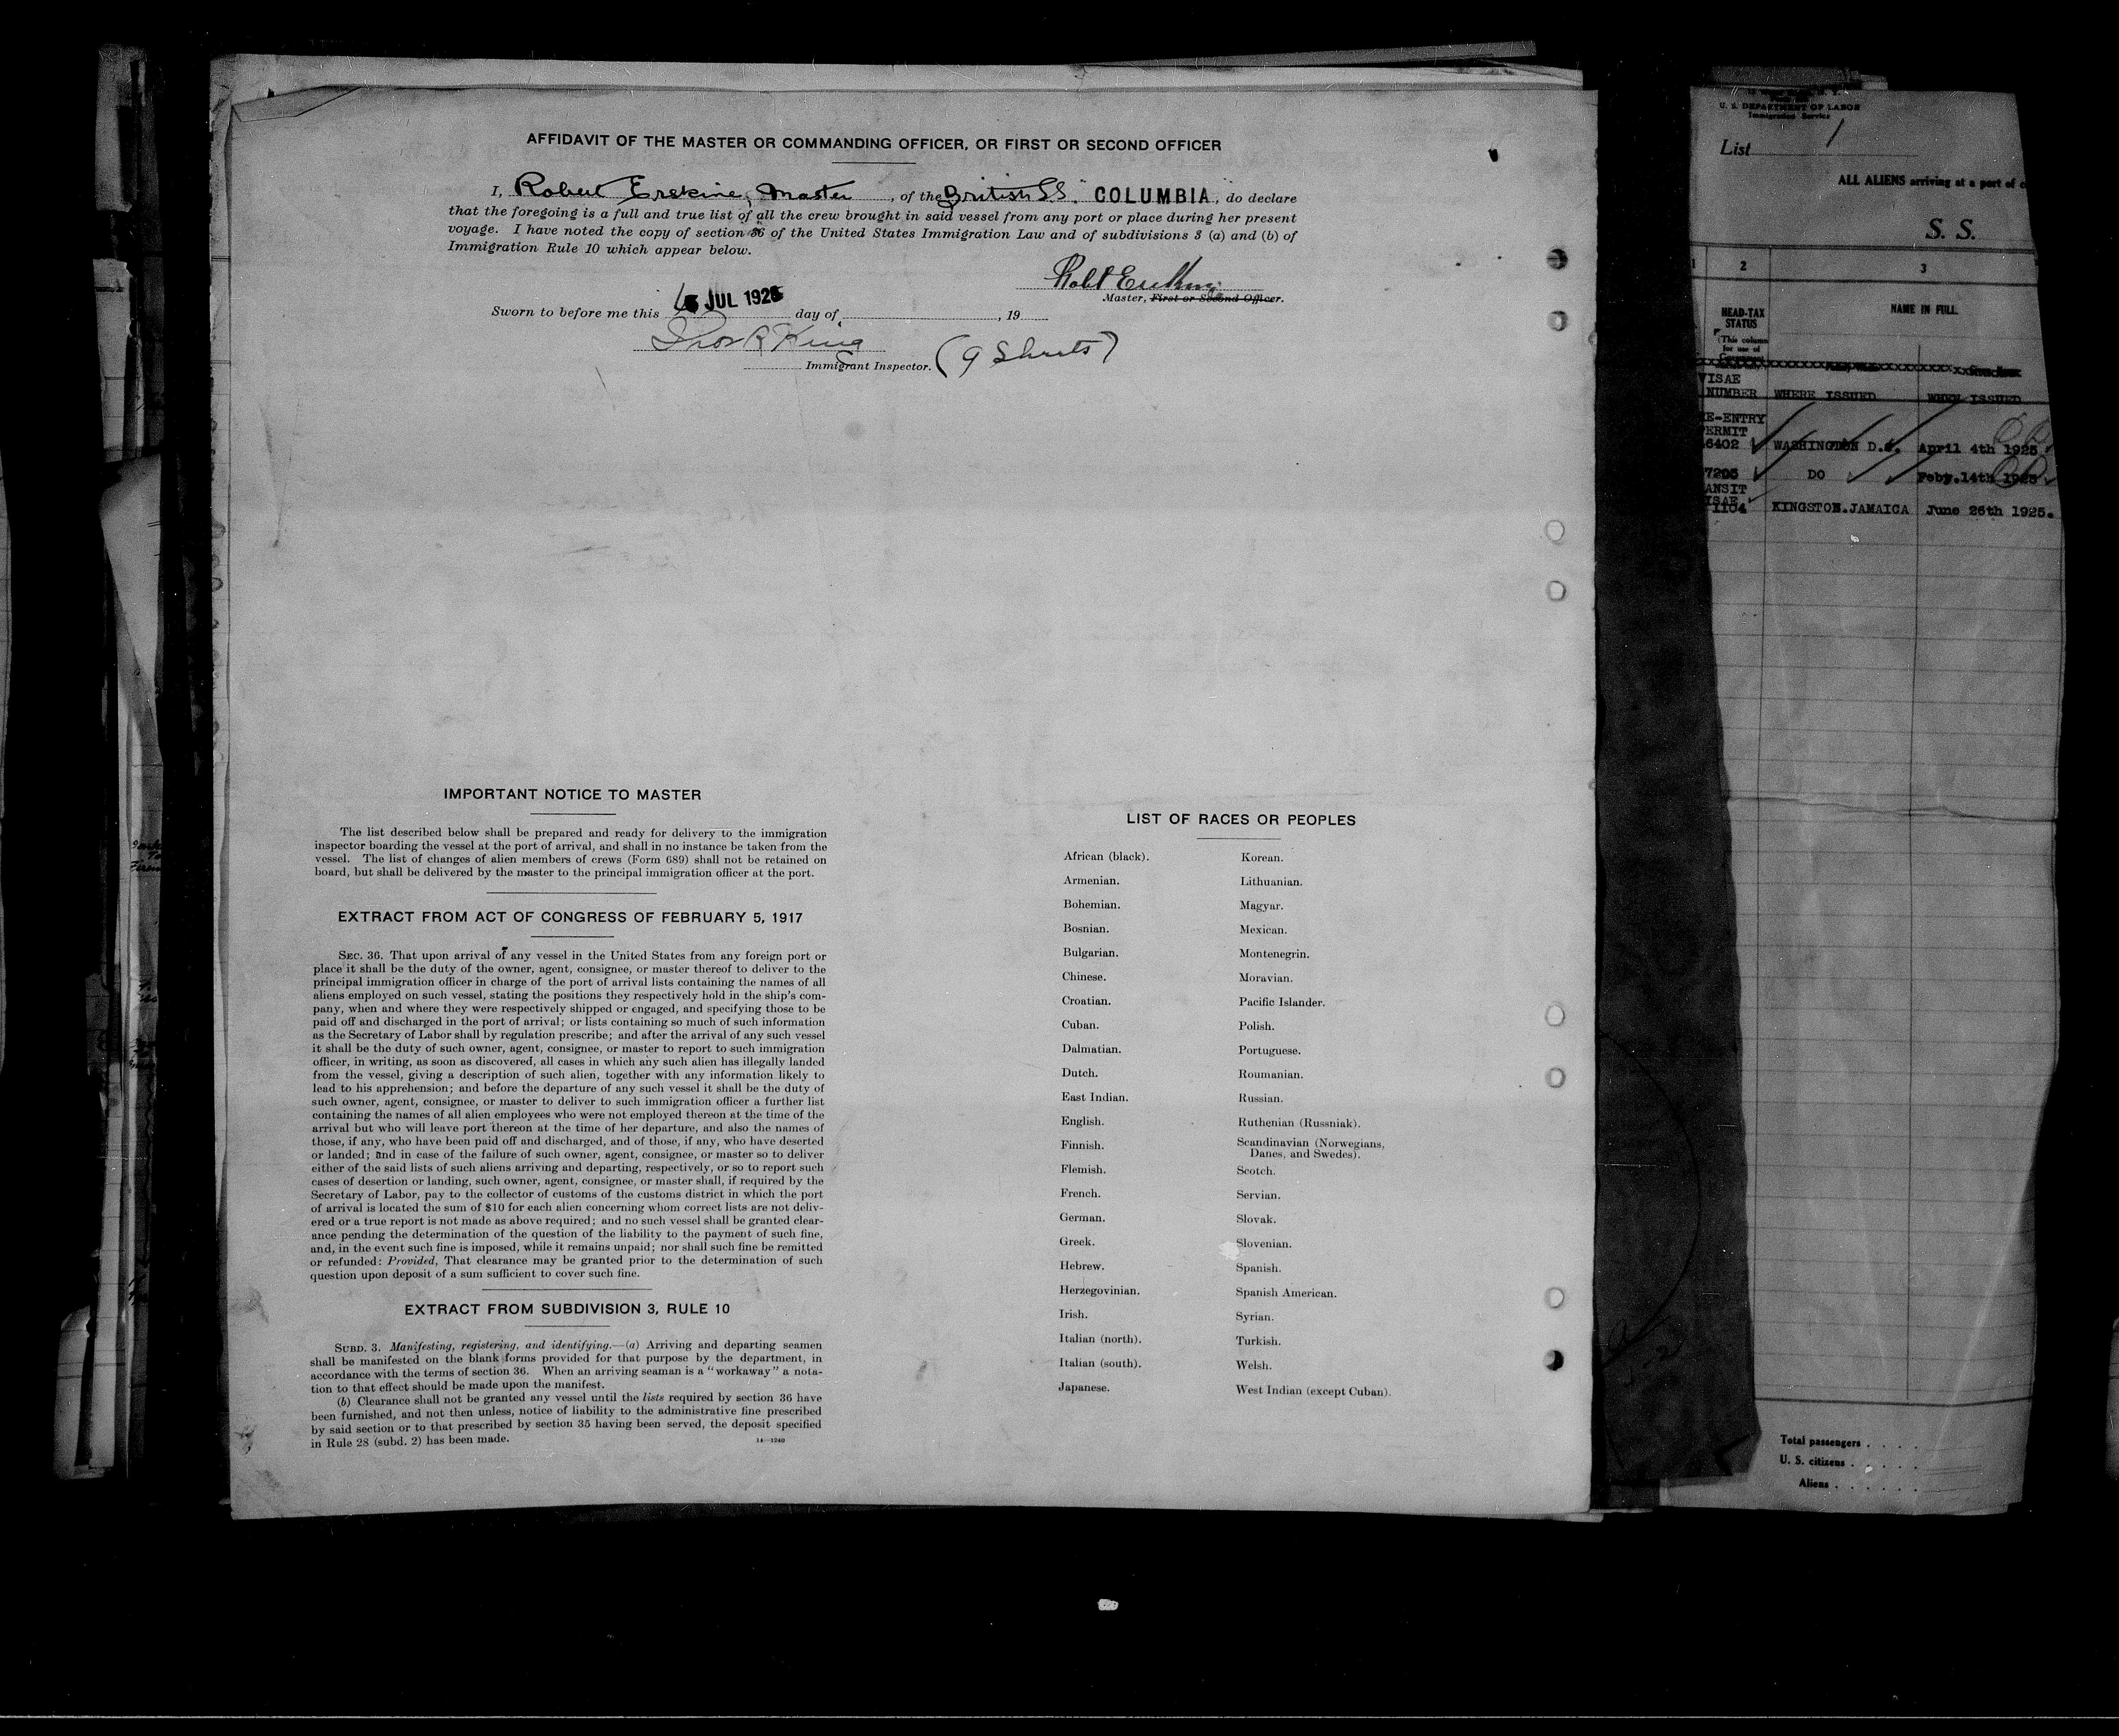 AFFIDAVIT OF THE MASTER OR COMMANDING OFFICER, OR FIRST OR SECOND OFFICER
I, Robert Erskine, Master, of the British SS. "COLUMBIA", do declare
that the foregoing is a full and true list of all the crew brought in said vessel from any port or place during her present
voyage. I have noted the copy of section 36 of the United States Immigration Law and of subdivisions 3 (a) and (b) of
Immigration Rule 10 which appear below.
Robt Erskine
Master, First or Second Officer.
Sworn to before me this JUL 1925 day of , 19
Thos R King
Immigrant Inspector. (9 Sheets)
IMPORTANT NOTICE TO MASTER
The list described below shall be prepared and ready for delivery to the immigration
inspector boarding the vessel at the port of arrival, and shall in no instance be taken from the
vessel. The list of changes of alien members of crews (Form 689) shall not be retained on
board, but shall be delivered by the master to the principal immigration officer at the port.
EXTRACT FROM ACT OF CONGRESS OF FEBRUARY 5, 1917
SEC. 36. That upon arrival of any vessel in the United States from any foreign port or
place it shall be the duty of the owner, agent, consignee, or master thereof to deliver to the
principal immigration officer in charge of the port of arrival lists containing the names of all
aliens employed on such vessel, stating the positions they respectively hold in the ship's com-
pany, when and where they were respectively shipped or engaged, and specifying those to be
paid off and discharged in the port of arrival; or lists containing so much of such information
as the Secretary of Labor shall by regulation prescribe; and after the arrival of any such vessel
it shall be the duty of such owner, agent, consignee, or master to report to such immigration
officer, in writing, as soon as discovered, all cases in which any such alien has illegally landed
from the vessel, giving a description of such alien, together with any information likely to
lead to his apprehension; and before the departure of any such vessel it shall be the duty of
such owner, agent, consignee, or master to deliver to such immigration officer a further list
containing the names of all alien employees who were not employed thereon at the time of the
arrival but who will leave port thereon at the time of her departure, and also the names of
those, if any, who have been paid off and discharged, and of those, if any, who have deserted
or landed; and in case of the failure of such owner, agent, consignee, or master so to deliver
either of the said lists of such aliens arriving and departing, respectively, or so to report such
cases of desertion or landing, such owner, agent, consignee, or master shall, if required by the
Secretary of Labor, pay to the collector of customs of the customs district in which the port
of arrival is located the sum of $10 for each alien concerning whom correct lists are not deliv-
ered or a true report is not made as above required; and no such vessel shall be granted clear-
ance pending the determination of the question of the liability to the payment of such fine,
and, in the event such fine is imposed, while it remains unpaid; nor shall such fine be remitted
or refunded: Provided, That clearance may be granted prior to the determination of such
question upon deposit of a sum sufficient to cover such fine.
EXTRACT FROM SUBDIVISION 3, RULE 10
SUBD. 3. Manifesting, registering, and identifying.—(a) Arriving and departing seamen
shall be manifested on the blank forms provided for that purpose by the department, in
accordance with the terms of section 36. When an arriving seaman is a "workaway" a nota-
tion to that effect should be made upon the manifest.
(b) Clearance shall not be granted any vessel until the lists required by section 36 have
been furnished, and not then unless, notice of liability to the administrative fine prescribed
by said section or to that prescribed by section 35 having been served, the deposit specified
in Rule 28 (subd. 2) has been made.
14—1240
LIST OF RACES OR PEOPLES
African (black).
Armenian.
Bohemian.
Bosnian.
Bulgarian.
Chinese.
Croatian.
Cuban.
Dalmatian.
Dutch.
East Indian.
English.
Finnish.
Flemish.
French.
German.
Greek.
Hebrew.
Herzegovinian.
Irish.
Italian (north).
Italian (south).
Japanese.
Korean.
Lithuanian.
Magyar.
Mexican.
Montenegrin.
Moravian.
Pacific Islander.
Polish.
Portuguese.
Roumanian.
Russian.
Ruthenian (Russniak).
Scandinavian (Norwegians,
Danes, and Swedes).
Scotch.
Servian.
Slovak.
Slovenian.
Spanish.
Spanish American.
Syrian.
Turkish.
Welsh.
West Indian (except Cuban).
U. S. DEPARTMENT OF LABOR
Immigration Service
List 1
ALL ALIENS arriving at a port of
S. S.
2 3
HEAD-TAX
STATUS
(This column
for use of
NAME IN FULL
VISAE
NUMBER WHERE ISSUED WHEN ISSUED
E-ENTRY
ERMIT
6402 WASHINGTON D.C. April 4th 1925
7205 DO Feby.14th 1925
ANSIT
ISAE
1104 KINGSTON.JAMAICA June 26th 1925.
Total passengers
U. S. citizens
Aliens